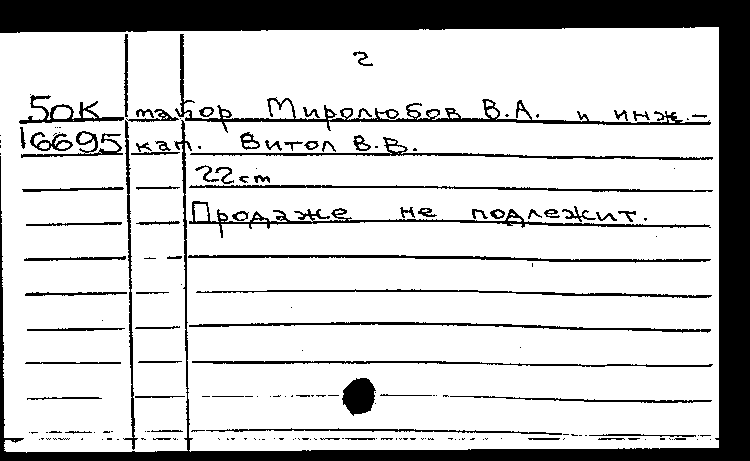 2
50К майор Миролюбов В.А. и инж.-
16695 кап. Витол В.В.
22 cm
Продаже не подлежит.